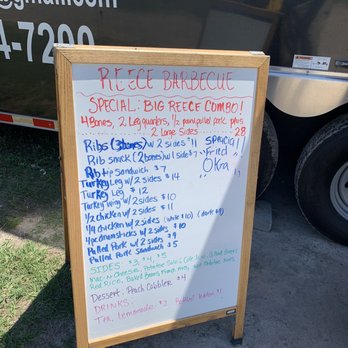 @gmail.com
4-7299
REECE BARBECUE
SPECIAL: BIG REECE COMBO!
4 Bones, 2 Leg quarters, 1/2 pan pulled pork plus
2 Large Sides 28
Ribs (3 bones) w/ 2 sides $11
Rib snack (2 bones) w/ 1 side $7
Rib tip Sandwich $7
Turkey Leg w/ 2 sides $14
Turkey Leg $12
Turkey wing w/ 2 sides $10
1/2 chicken w/ 2 sides $11
1/4 chicken w/ 2 sides (white $10) (dark $9)
4pc drumsticks w/ 2 sides $10
Pulled Pork w/ 2 sides $9
Pulled Pork Sandwich $5
SPECIAL!
Fried
Okra
SIDES: $3, $4, $5
Mac-n-Cheese, Potato Salad, Cole Slaw, Green Beans
Red Rice, Baked Beans, French Fries,
Dessert: Peach Cobbler $4
DRINKS:
Tea, Lemonade $3, Bottled Water $1